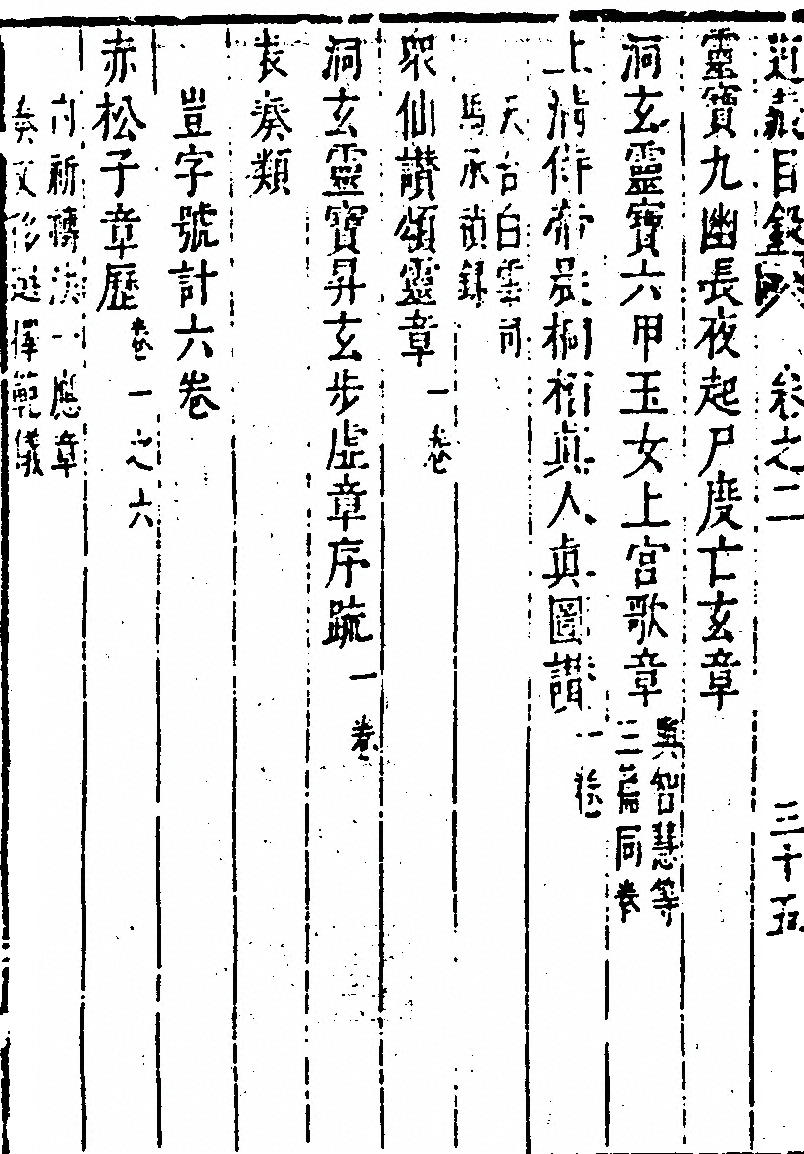 道藏目錄 卷之二 三十五
靈寶九幽長夜起尸度亡玄章
洞玄靈寶六甲玉女上宮歌章 與智慧等三篇同卷
上清侍帝晨桐栢眞人眞圖讃 一卷
天台白雲司馬承禎錄
衆仙讃頌靈章 一卷
洞玄靈寶昇玄步虛章序疏 一卷
表奏類
豈字號計六卷
赤松子章曆 卷一之六
內祈禱法一應章
奏文移選擇範儀